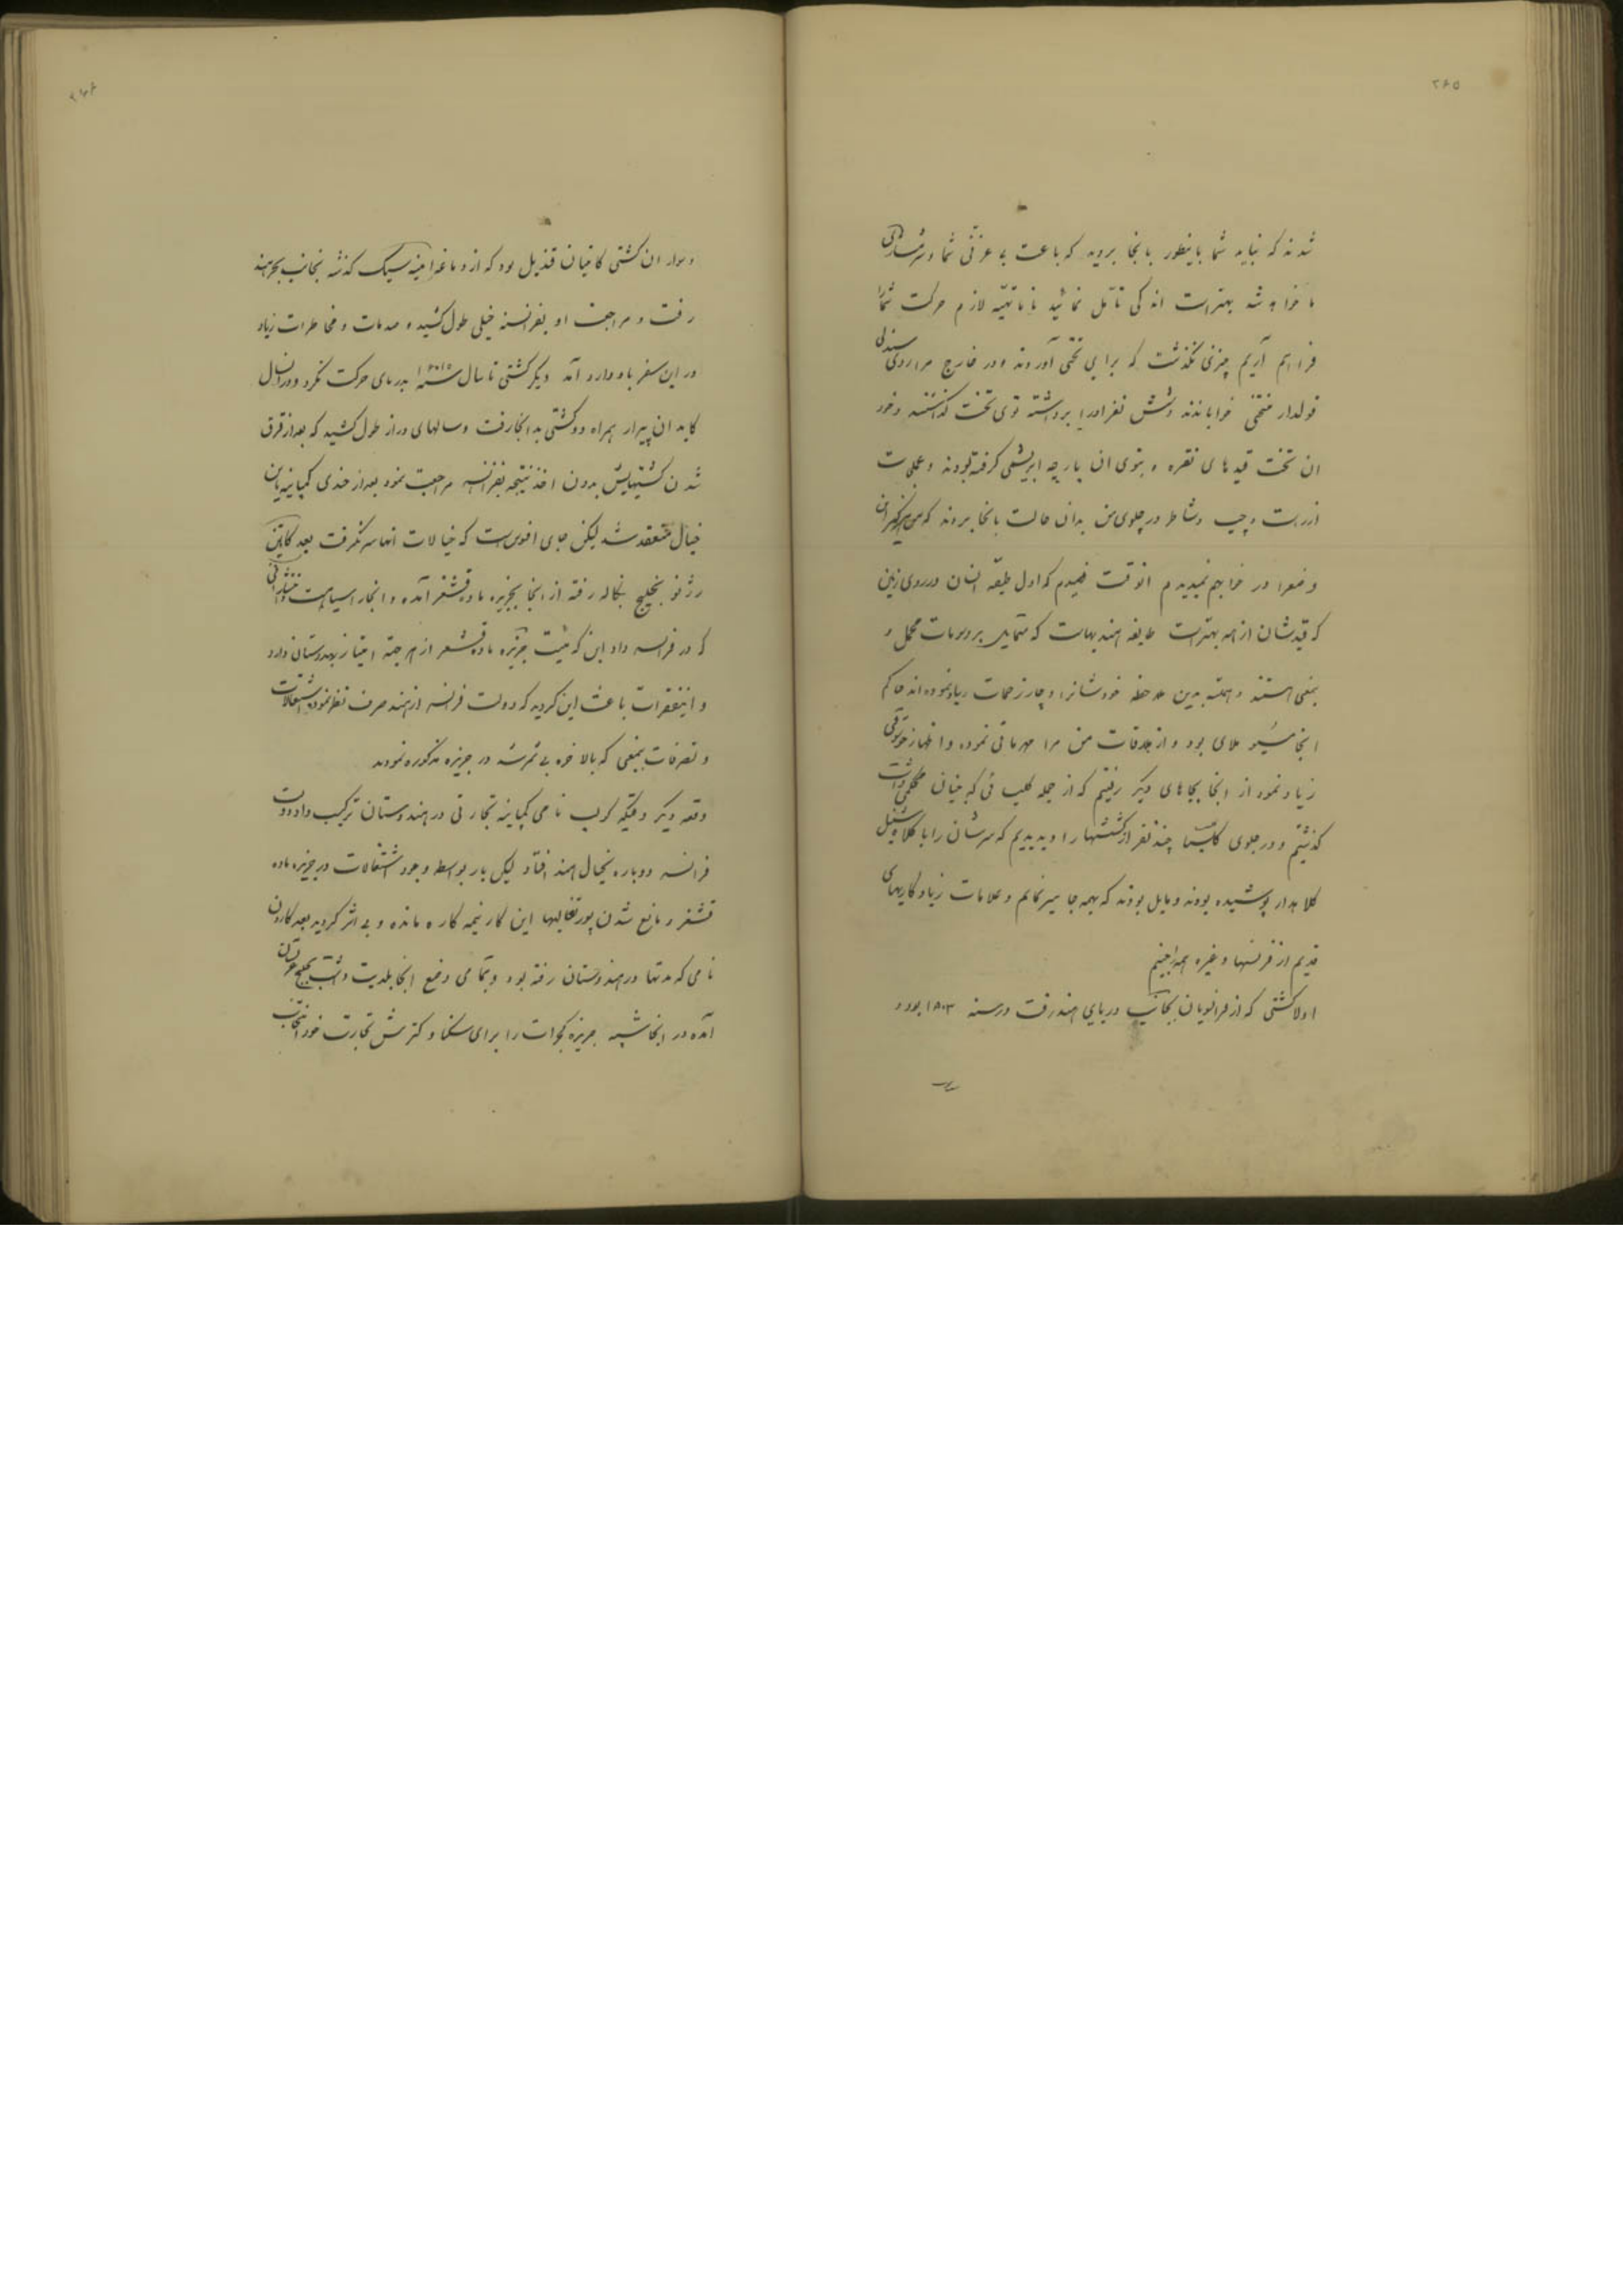 ۲۶۵
شدند که نباید شما باینطور بانجا بروید که باعث بی عزتی شما و شرمساری
ما خواهد شد بهتر است اندکی تأمل نمائید تا ما تهیه لازم حرکت شما را
فراهم آریم چیزی نگذشت که برای تختی آوردند و در خارج مرا روی صندلی
خوابانده و شش نفر او را برداشته توی تخت گذاشتند و خود
ان تخت قبه های نقره و بتوی ان پارچه ابریشمی گرفته بودند و عملجات
از راست و چپ و شاطر در جلوی من بدان حالت بانجا بردند که من
وضع را در خوابم نمیدیدم انوقت فهمیدم که اول طبقه انسان در روی زمین
که قیدشان از همه بهتر است طایفه هندیهاست که متمایل بر رسومات مهمل و
بیمعنی هستند و البته بدین ملاحظه خودشانرا دچار زحمات زیاد نموده اند حاکم
انجا مسیو ملای بود و از ملاقات من مرا مهربانی نموده و اظهار خوشوقتی
زیاد نمود از انجا بجاهای دیگر رفتیم که از جمله کلیسائی که بنیان محکمی داشت
گذشتیم و در جلوی کلیسا چند نفر از کشیشها را دیدیم که سرشان را با کلاه
کلاهدار پوشیده بودند و مایل بودند که بهمه جا سیر نمائیم و علامات زیاد و کارهای
قدیم از فرنسها و غیره همه را ببینیم
اولا کشتی که از فرانسویان بجانب دریای هند رفت در سنه ۱۵۰۳ بود و
و سوار ان کشتی کاپیتان قندیل بود که از دماغه امید نیک گذشته بجانب بحر هند
رفت و مراجعت او بفرانسه خیلی طول کشید و صدمات و مخاطرات زیاد
در این سفر باو وارد آمد دیگر کشتی تا سال سنه بدریای حرکت نکرد و در انسال
کاپیدان پیرار همراه دو کشتی بدانجا رفت و سالهای دراز طول کشید که بعد از غرق
شدن کشتیهایش بدون اخذ نتیجه بفرانسه مراجعت نمود بعد از چندی کمپانیه بان
خیال منعقد شد لیکن جای افسوس است که خیالات انها سر نگرفت بعد کاپیتن
رژنو بخلیج بنگاله رفته از انجا بجزیره ماده قشقر آمده و انجا را سیاحت
که در فرانسه داد این که نیست جزیره ماده قشقر از هر جهة امتیاز بهندوستان دارد
و اینفقرات باعث این گردید که دولت فرانسه از هند صرف نظر نموده و اشتغالات
و تصرفات بیمعنی که بالاخره بی ثمر شد در جزیره مذکوره نمودند
دفعه دیگر وقتیکه کولب نامی کمپانیه تجارتی در هندوستان ترکیب داد دولت
فرانسه دوباره بخیال هند افتاد لیکن باز بواسطه وجود اشتغالات در جزیره ماده
قشقر و مانع شدن پورتغالیها این کار نیمه کاره مانده و بی اثر گردید بعد کارون
نامی که مدتها در هندوستان رفته بود و بتمامی وضع انجا بلدیت داشت بخلیج
آمده در انجا شبه جزیره گجرات را برای سکنا و گسترش تجارت خود انتخاب